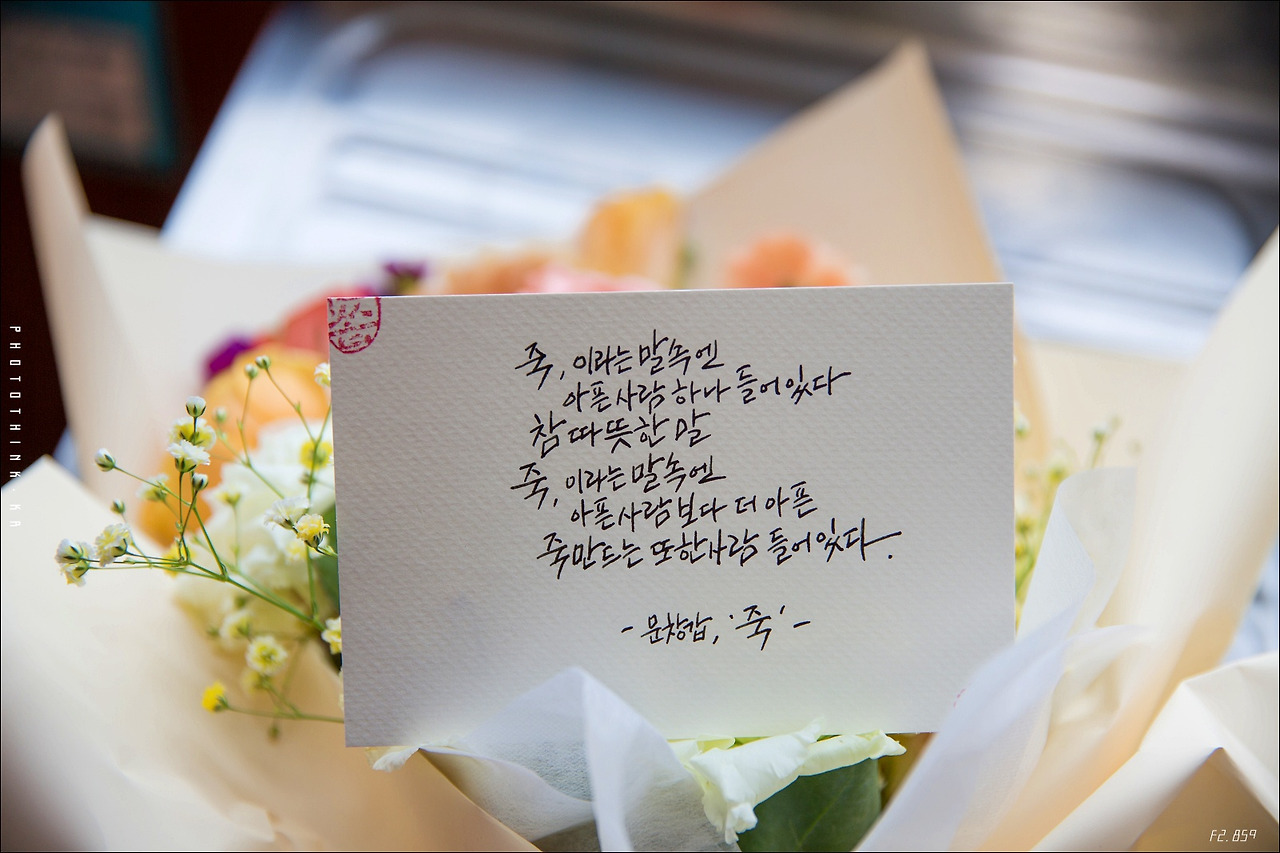 죽, 이라는 말속엔
아픈사람 하나 들어있다
참 따뜻한 말
죽, 이라는 말속엔
아픈사람보다 더 아픈
죽만드는 또한사람 들어있다.
- 문창갑, '죽' -
PHOTOTHINK.KR
F2.859